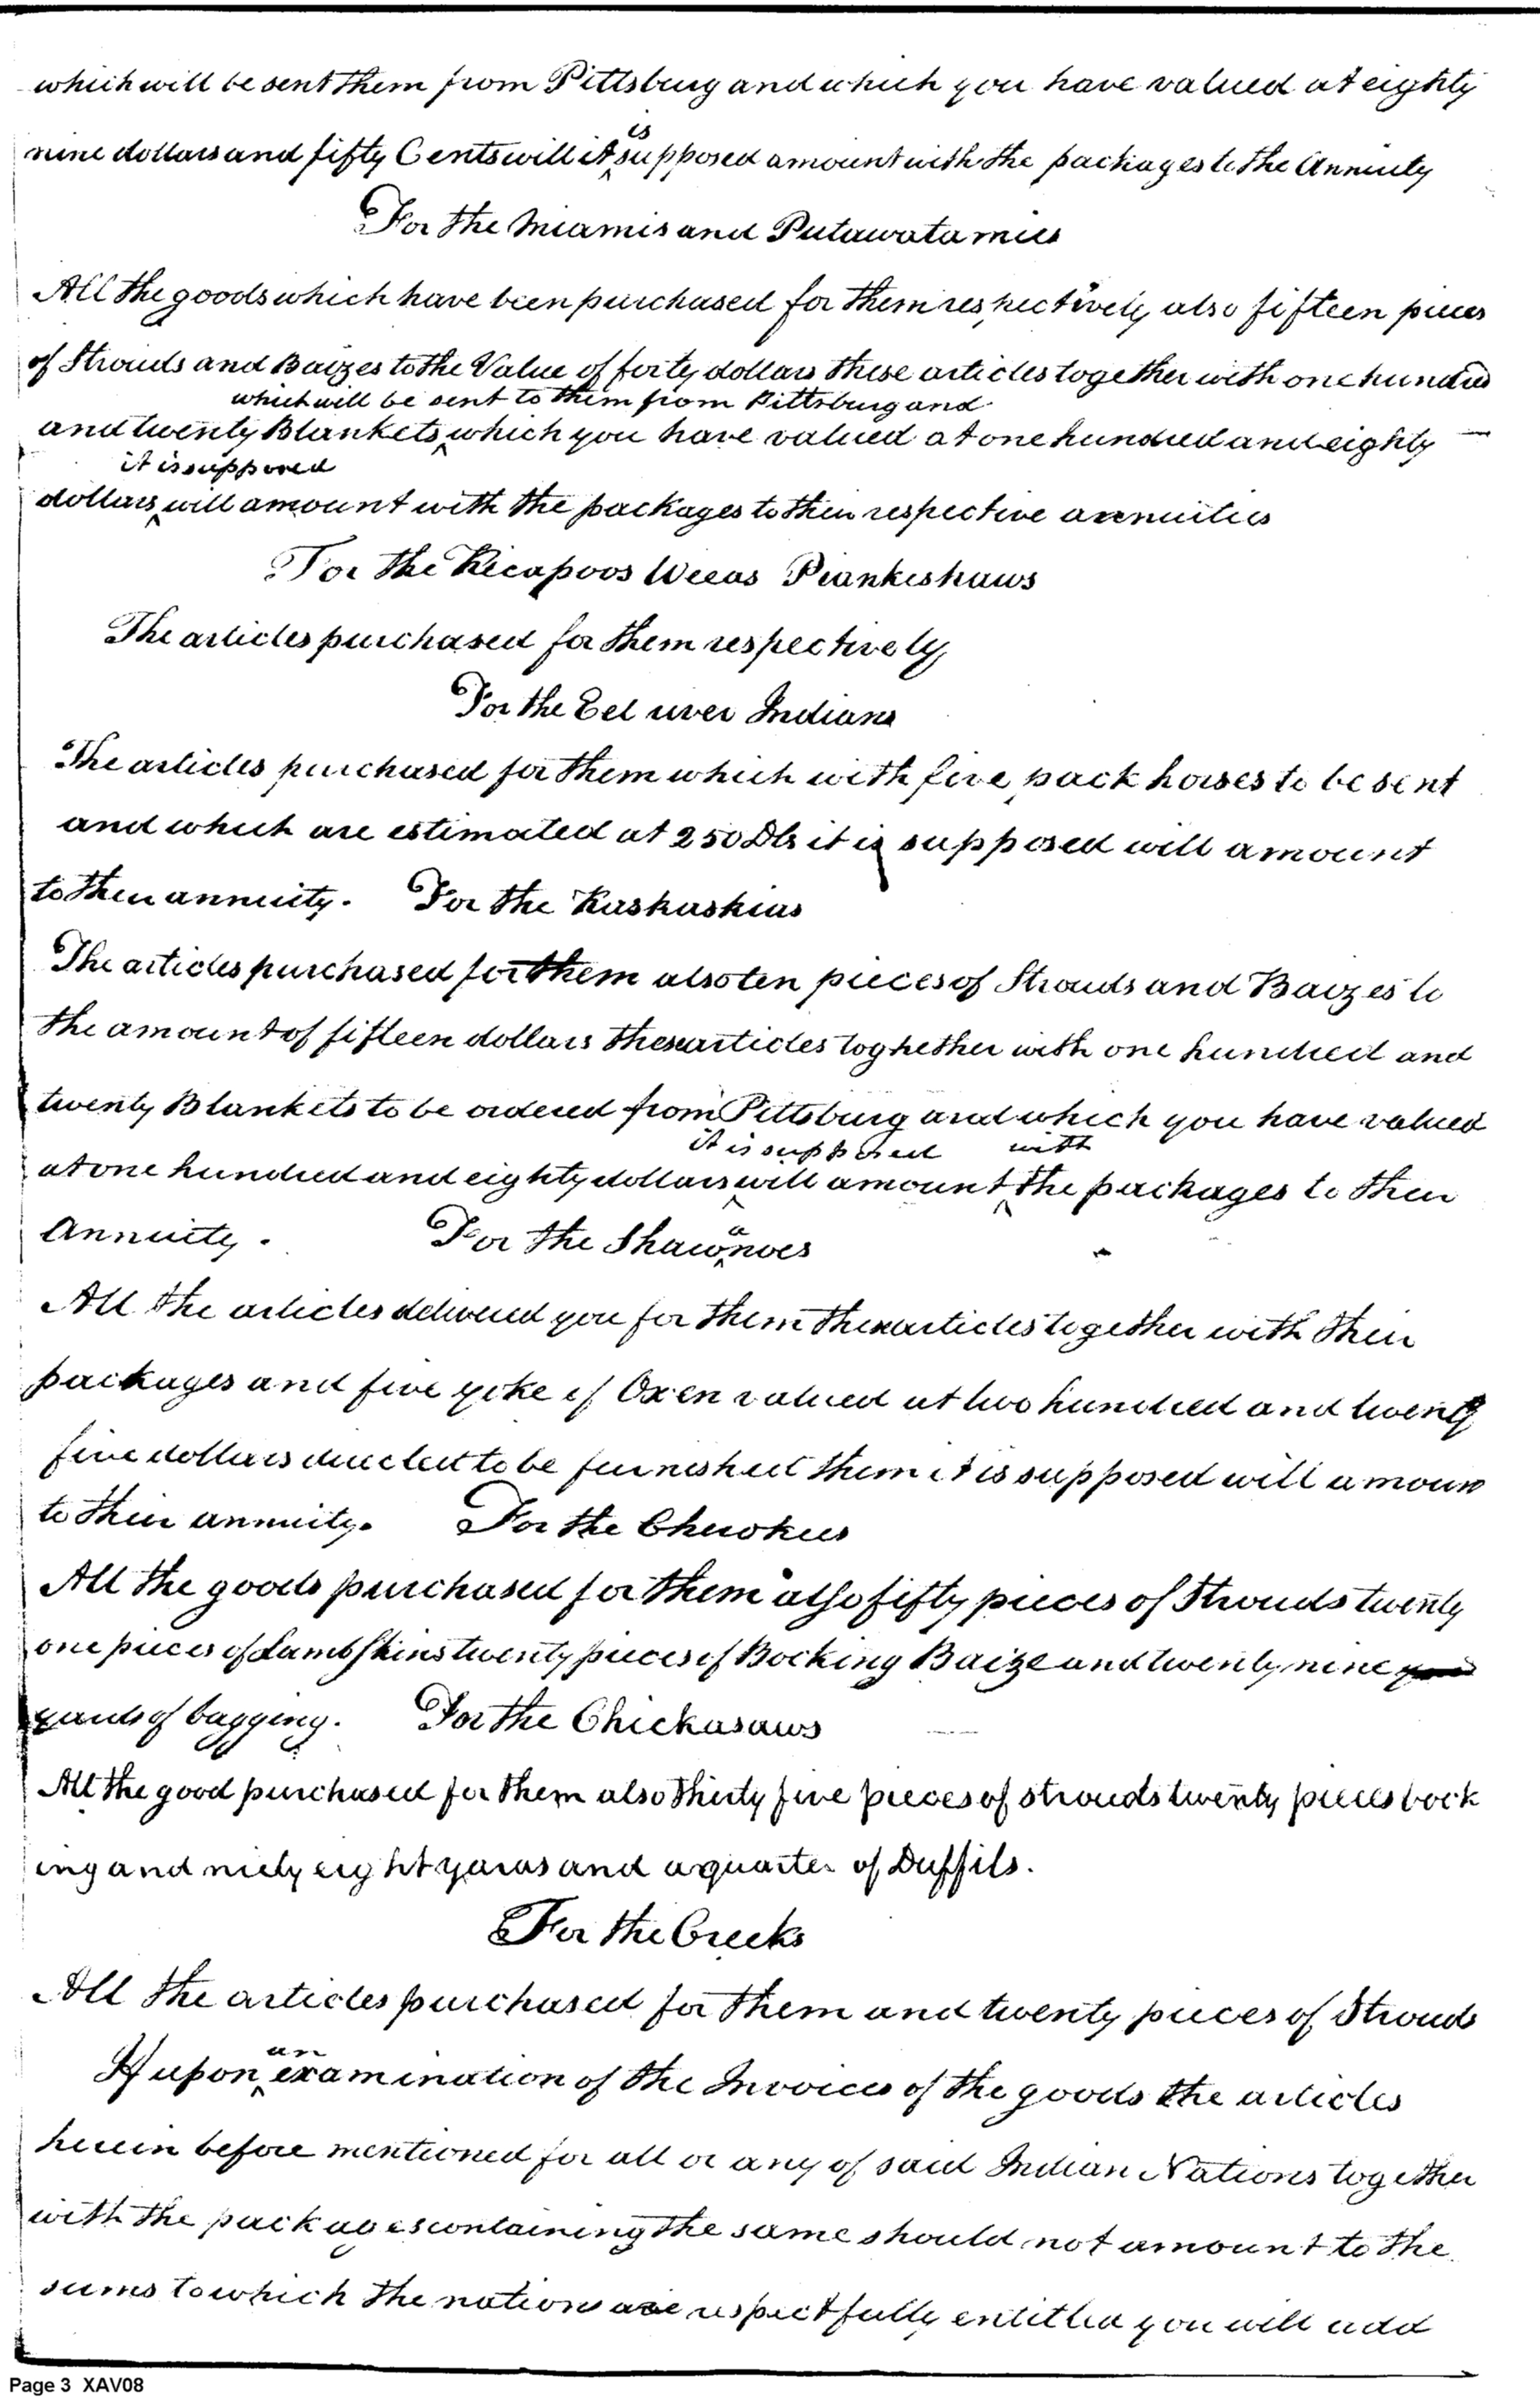 which will be sent them from Pittsburg and which you have valued at eighty
is
nine dollars and fifty Cents will it supposed amount with the packages to the Annuity
For the Miamis and Putawatamies
All the goods which have been purchased for them respectively also fifteen pieces
of Strouds and Baizes to the Value of forty dollars these articles together with one hundred
which will be sent to them from Pittsburg and
and twenty Blankets which you have valued at one hundred and eighty
it is supposed
dollars will amount with the packages to their respective annuities
For the Kicapoos Weeas Piankeshaws
The articles purchased for them respectively
For the Eel river Indians
The articles purchased for them which with five pack horses to be sent
and which are estimated at 250 Dls it is supposed will amount
to their annuity. For the Kaskaskias
The articles purchased for them also ten pieces of Strouds and Baizes to
the amount of fifteen dollars these articles toghether with one hundred and
twenty Blankets to be ordered from Pittsburg and which you have valued
it is supposed with
at one hundred and eighty dollars will amount the packages to their
Annuity. For the Shawnoes
a
All the articles delivered you for them these articles together with their
packages and five yoke of Oxen valued at two hundred and twenty
five dollars directed to be furnished them it is supposed will amoun
to their annuity. For the Cherokees
All the goods purchased for them also fifty pieces of Strouds twenty
one pieces of Lamb Skins twenty pieces of Bocking Baize and twenty nine
yards of bagging. For the Chickasaws
All the good purchased for them also thirty five pieces of strouds twenty pieces bock
ing and niely eight yards and a quarter of Duffils.
For the Creeks
All the articles purchased for them and twenty pieces of Strouds
an
If upon examination of the Invoices of the goods the articles
herein before mentioned for all or any of said Indian Nations together
with the packages containing the same should not amount to the
sums to which the nations are respectfully entitled you will add
Page 3 XAV08